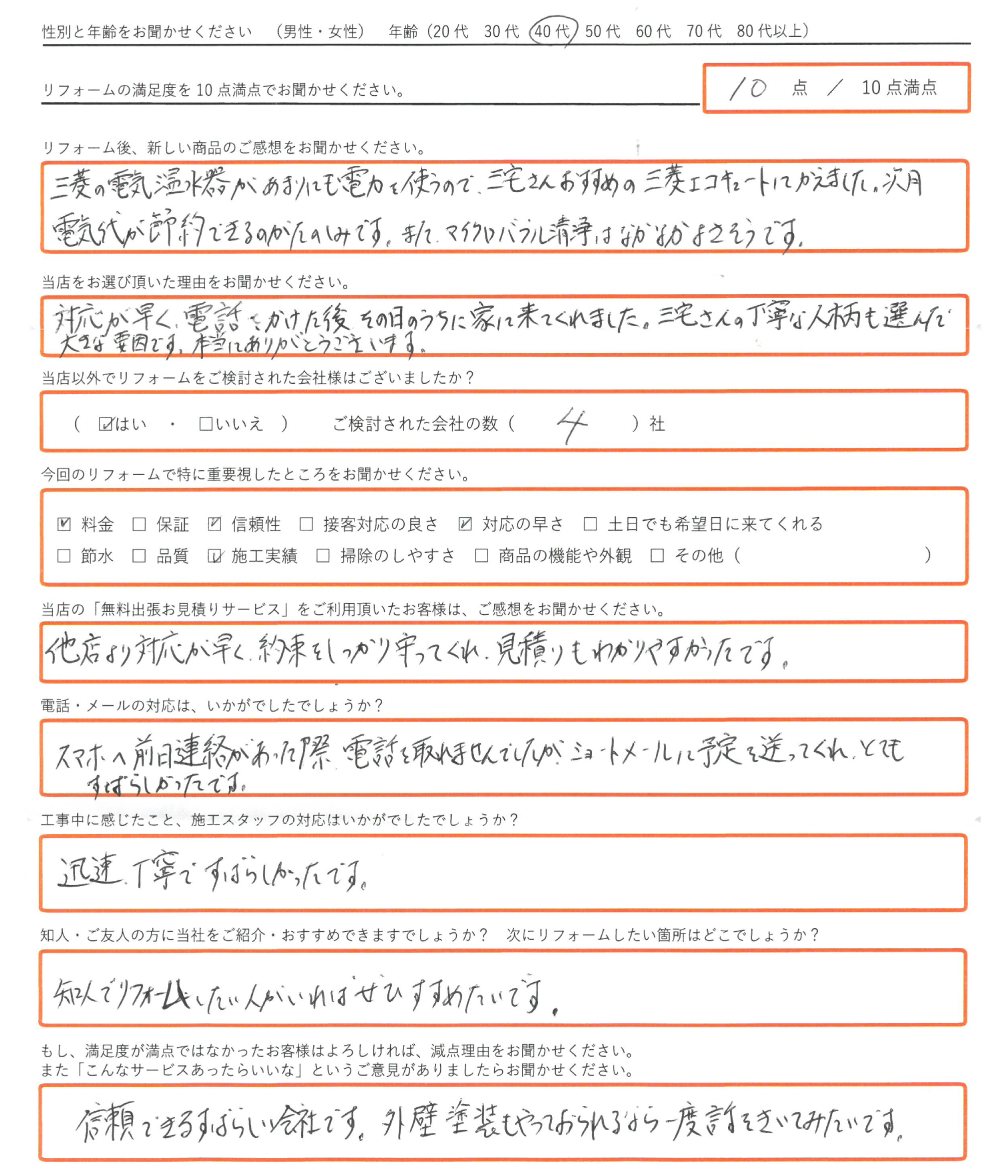 性別と年齢をお聞かせください （男性・女性） 年齢（20代 30代 40代 50代 60代 70代 80代以上）
リフォームの満足度を10点満点でお聞かせください。 10 点 ／ 10点満点
リフォーム後、新しい商品のご感想をお聞かせください。
三菱の電気温水器があまりにも電力を使うので、三宅さんおすすめの三菱エコキュートにかえました。次月
電気代が節約できるのがたのしみです。また、マイクロバブル清浄はなかなかよさそうです。
当店をお選び頂いた理由をお聞かせください。
対応が早く、電話をかけた後、その日のうちに家に来てくれました。三宅さんの丁寧な人柄も選んだ
大きな要因です。本当にありがとうございます。
当店以外でリフォームをご検討された会社様はございましたか？
（ ☑はい ・ □いいえ ） ご検討された会社の数（ 4 ）社
今回のリフォームで特に重要視したところをお聞かせください。
☑ 料金 □ 保証 ☑ 信頼性 □ 接客対応の良さ ☑ 対応の早さ □ 土日でも希望日に来てくれる
□ 節水 □ 品質 ☑ 施工実績 □ 掃除のしやすさ □ 商品の機能や外観 □ その他（ ）
当店の「無料出張お見積りサービス」をご利用頂いたお客様は、ご感想をお聞かせください。
他店より対応が早く、約束をしっかり守ってくれ、見積りもわかりやすかったです。
電話・メールの対応は、いかがでしたでしょうか？
スマホへ前日連絡があった際、電話を取れませんでしたが、ショートメールに予定を送ってくれ、とても
すばらしかったです。
工事中に感じたこと、施工スタッフの対応はいかがでしたでしょうか？
迅速、丁寧ですばらしかったです。
知人・ご友人の方に当社をご紹介・おすすめできますでしょうか？ 次にリフォームしたい箇所はどこでしょうか？
知人でリフォームしたい人がいればぜひすすめたいです。
もし、満足度が満点ではなかったお客様はよろしければ、減点理由をお聞かせください。
また「こんなサービスあったらいいな」というご意見がありましたらお聞かせください。
信頼できるすばらしい会社です。外壁塗装もやっておられるなら一度話をきいてみたいです。